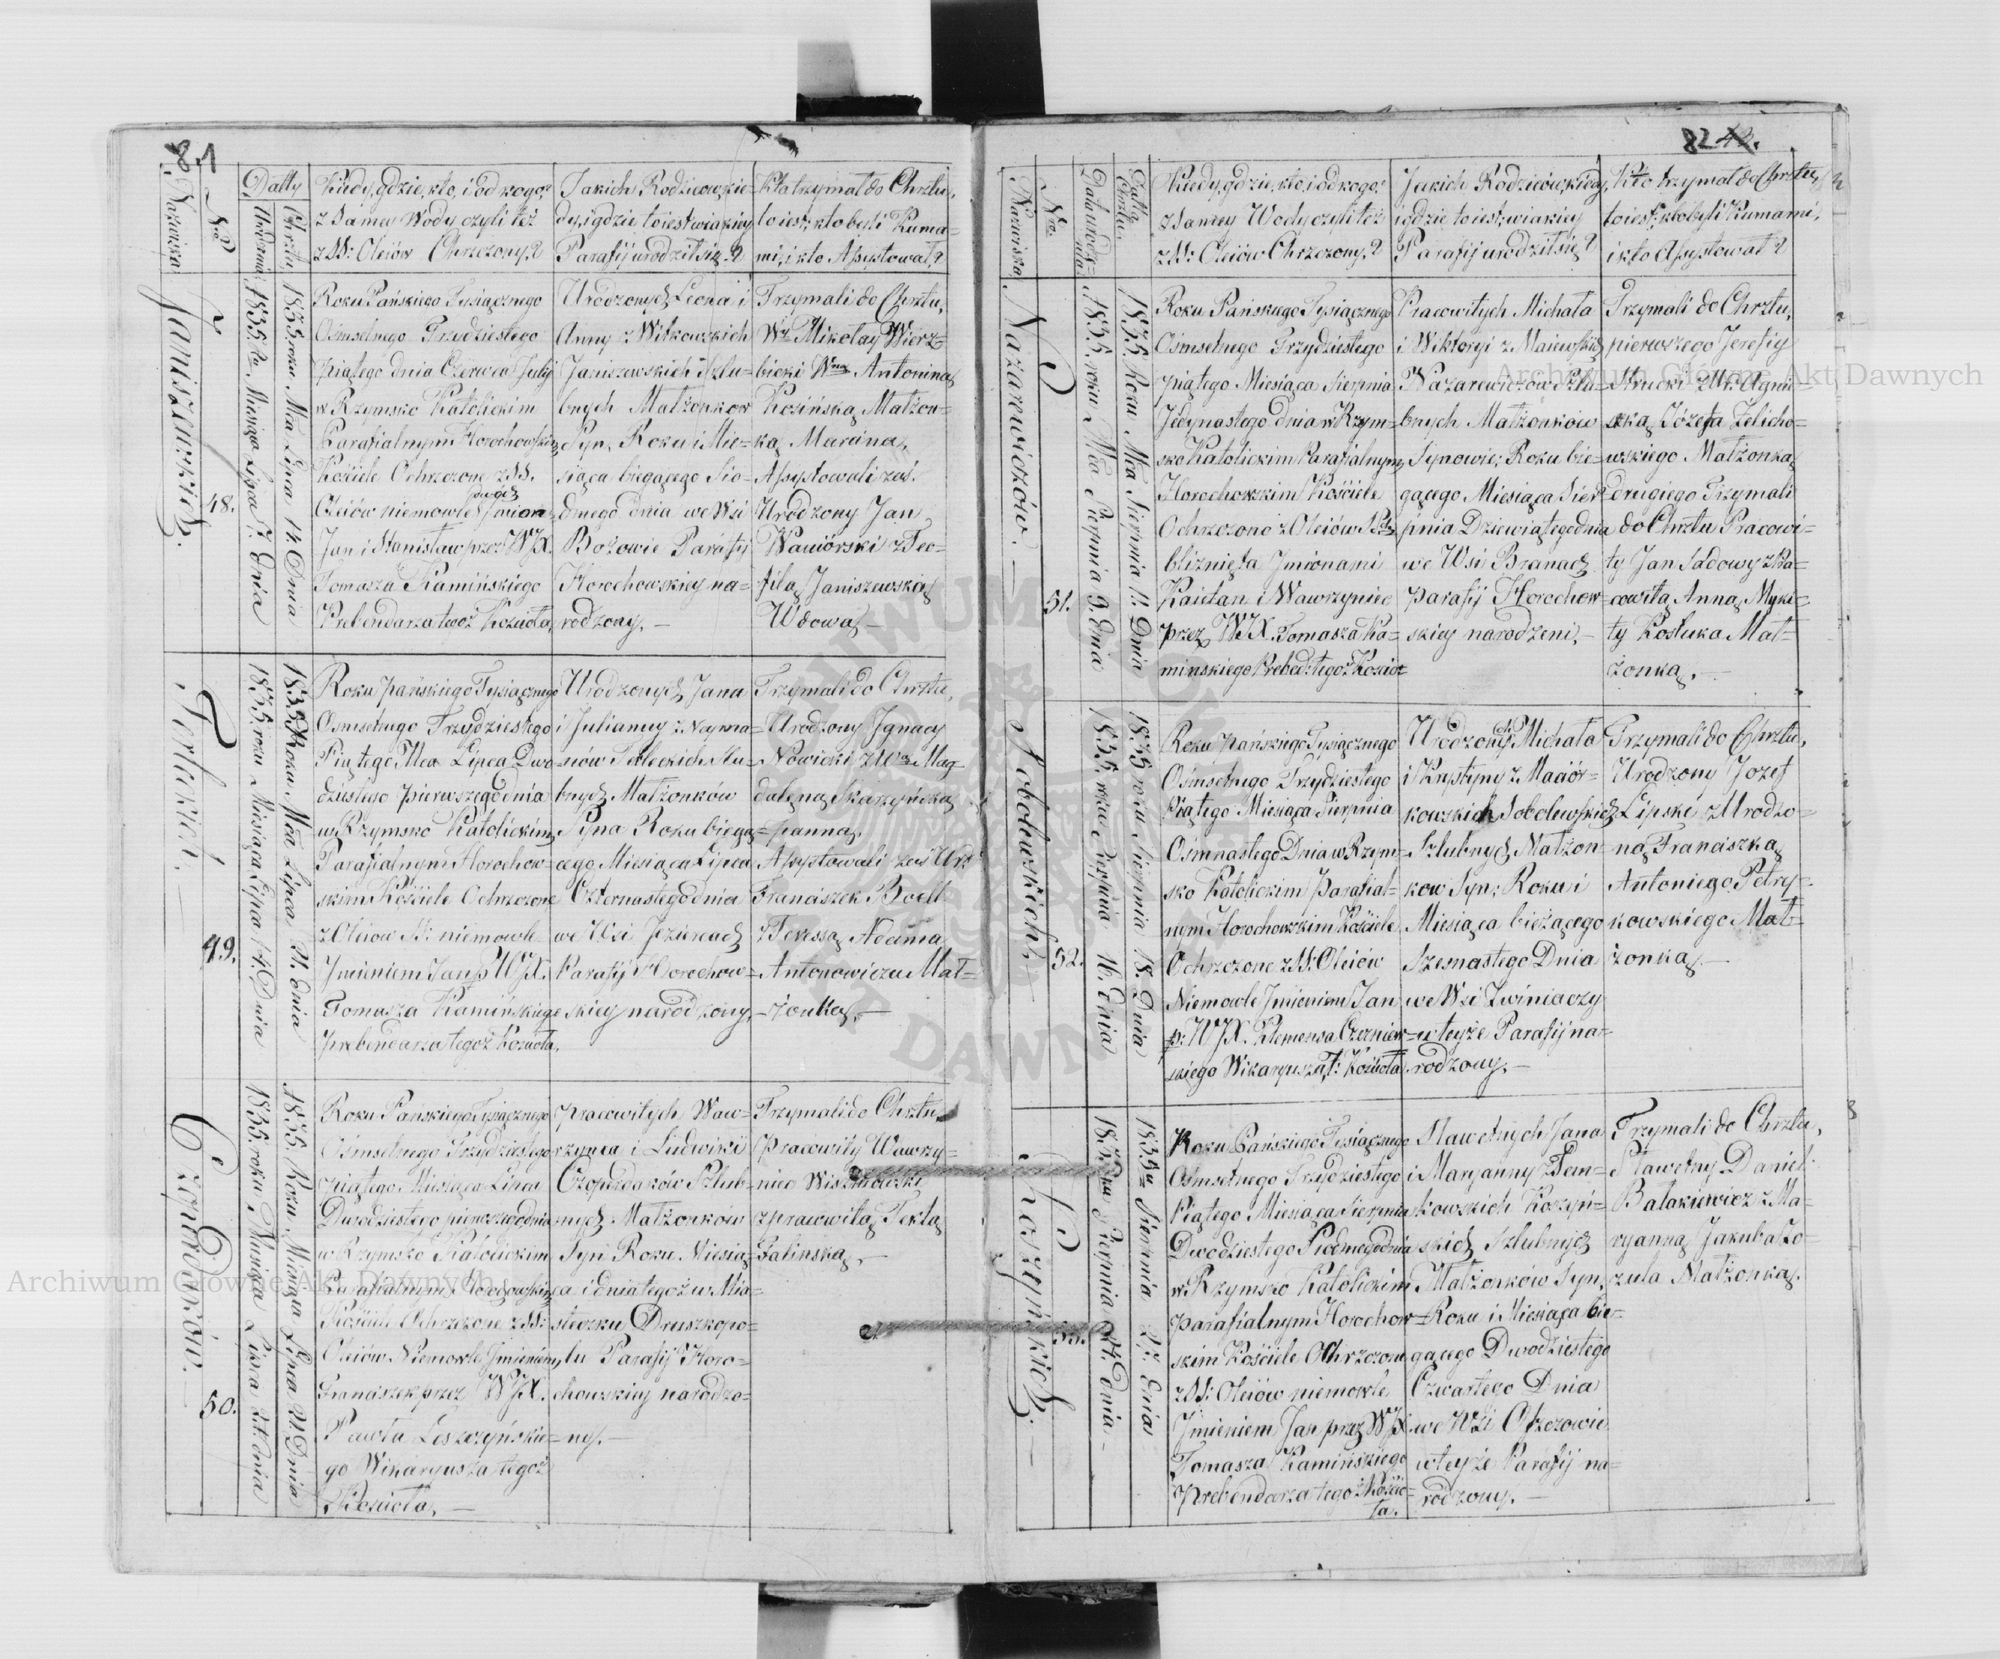 8.1
Nazwiska
No
Datty
Urodzenia
Chrztu
Kiedy, gdzie, kto, i od kogo?
z Samey Wody czyli też
z SS: Oleiów Chrzczony?
Jakich Rodziców, kie-
dy, i gdzie to iest w iakiey
Parafij urodził się?
Kto trzymał do Chrztu,
to iest, kto byli Kuma-
mi, i kto Assystował?
Janiszewskich.
48.
1835. Ru Miesiąca Lipca 7. dnia
1835. roku Mca Lipca 14 Dnia
Roku Pańskiego Tysiącznego
Ośmsetnego Trzydziestego
Piątego dnia Czerwca July
w Rzymsko Katolickim
Parafialnym Horochowskim
Kościele Ochrzczone z SS.
Oleiów niemowle
Jan i Stanisław przez WJX.
Tomasza Kamińskiego
Prebendarza tegoż Kościoła,
Urodzonych Leona i
Anny z Witkowskich
Janiszewskich Szlu-
bnych Małżonków
Syn, Roku i Mie-
siąca biegącego Sio-
dmego dnia we Wsi
Bożowie Parafij
Horochowskiey na-
rodzony. —
Trzymali do Chrztu,
Wny Mikołay Wierz-
bicki Wną Antoniną
Kozińską Małżon-
ką Marcina,
Assystowali zaś.
Urodzony Jan
Waniórski z Teo-
filą Janiszewską
Wdową —
Terleckich.
49.
1835. roku Miesiąca Lipca 14. Dnia
1835 Roku Mca Lipca 21. dnia
Roku Pańskiego Tysiącznego
Ośmsetnego Trzydziestego
Piątego Mca Lipca Dwu-
dziestego pierwszego dnia
w Rzymsko Katolickim
Parafialnym Horochow-
skim Kościele Ochrzczone
z Oleiow SS: niemowle
Jmieniem Jan p WJX.
Tomasza Kamińskiego
Prebendarza tegoż Kościoła,
Urodzonych Jana
i Julianny z Nayma-
nów Terleckich Szlu-
bnych Małżonków
Syna Roku biegą-
cego Miesiąca Lipca
Czternastego dnia
we Wsi Jziercach
Parafij Horochow-
skiey narodzony, —
Trzymali do Chrztu,
Urodzony Jgnacy
Nowicki z Wną Mag-
daleną Skarzyńską
panną,
Assystowali zaś Urd
Franciszek Boett
z Teressą Adama
Antonowicza Mał-
żonką. —
Czopurdaków. —
50.
1835. roku Miesiąca Lipca 21. dnia
1835. Roku Miesiąca Lipca 21. Dnia
Roku Pańskiego Tysiącznego
Ośmsetnego Trzydziestego
piątego Miesiąca Lipca
Dwudziestego pierwszego dnia
w Rzymsko Katolickim
Parafialnym Horochowskim
Kościele Ochrzczone z SS:
Oleiów Niemowle Jmieniem
Franciszek przez WJX.
Pawła Leszczyńskie-
go Wikaryusza tegoż
Kościoła. —
pracowitych Waw-
rzynca i Ludwiki
Czopurdaków Szlub-
nych Małżonków
Syn Roku Miesią-
ca i dnia tegoż w Mia-
steczku Druszkopo-
lu Parafij Horo-
chowskiey narodzo-
ny. —
Trzymali do Chrztu,
Pracowity Wawrzy-
niec Wiszniowski
z pracowitą Teklą
Zalinską. —
82 42.
Nazwiska
No
Data urodze-
nia
Datta
Chrztu
Kiedy, gdzie, kto, i od kogo?
z Samey Wody czyli też
z SS: Oleiów Chrzczony?
Jakich Rodziców kiedy,
i gdzie to iest, w iakiey
Parafij urodził się?
Kto trzymał do Chrztu,
to iest, kto byli Kumami,
i kto Assystował?
Nazarewiczów. —
51.
1835. roku Mca Sierpnia 9. dnia
1835. Roku Mca Sierpnia 11. Dnia
Roku Pańskiego Tysiącznego
Ośmsetnego Trzydziestego
piątego Miesiąca Sierpnia
Jedynastego dnia w Rzym-
sko Katolickim Parafialnym
Horochowskim Kościele
Ochrzczono z Oleiów SS:
bliźnięta Jmionami
Kaietan i Wawrzyniec
przez WJX. Tomasza Ka-
minskiego Prebed: tegoż Kościoł
Pracowitych Michała
i Wiktoryi z Maiewskich
Nazarewiczów Szlu-
bnych Małżonków
Synowie; Roku bie-
gącego Miesiąca Sier-
pnia Dziewiątego dnia
we Wsi Branach
parafij Horochow-
skiey narodzeni, —
Trzymali do Chrztu,
pierwszego Jerefiy
Strucki z Ur: Agnie-
szką Józefa Zelicho-
wskiego Małżonką
drugiego Trzymali
do Chrztu Pracowi-
ty Jan Sadowy z Pra-
cowitą Anną Myki-
ty Kostuka Mał-
żonką. —
Sobolewskich. —
52.
1835. roku Sierpnia 16. dnia
1835 roku Sierpnia 18. Dnia
Roku Pańskiego Tysiącznego
Ośmsetnego Trzydziestego
Piątego Miesiąca Sierpnia
Ośmnastego Dnia w Rzym-
sko Katolickim Parafial-
nym Horochowskim Kościele
Ochrzczone z SS: Oleiów
Niemowle Jmieniem Jan
p: WJX. Klemensa Czerniew-
skiego Wikaryusza t: Kościoła
Urodzonych Michała
i Krystyny z Maciór-
kowskich Sobolewskich
Szlubnych Małżon-
kow Syn; Roku i
Miesiąca bieżącego
Szesnastego Dnia
we Wsi Zwiniaczy
w teyże Parafij na-
rodzony. —
Trzymali do Chrztu,
Urodzony Jozef
Lipski z Urodzo-
ną Franciszką
Antoniego Petry-
kowskiego Mał-
żonką. —
Koszyńskich. —
53.
1835 Ru Sierpnia 24. dnia —
1835 Ru Sierpnia 27. Dnia
Roku Pańskiego Tysiącznego
Ośmsetnego Trzydziestego
Piątego Miesiąca Sierpnia
Dwodziestego Siodmego dnia
w Rzymsko Katolickim
parafialnym Horochow-
skim Kościele Ochrzczone
z SS: Oleiów niemowle
Jmieniem Jan przez WJX.
Tomasza Kamińskiego
Prebendarza tegoż Kościo-
ła.
Sławetnych Jana
i Maryanny z Dem-
kowskich Koszyń-
skich Szlubnych
Małżonków Syn,
Roku i Miesiąca bie-
gącego Dwodziestego
Czwartego Dnia
we Wsi Ośczowie
w teyże Parafij na-
rodzony. —
Trzymali do Chrztu,
Sławetny Daniel
Bałakiewicz z Ma-
ryanną Jakuba Ko-
zuła Małżonką.
Archiwum Główne Akt Dawnych
Archiwum Główne Akt Dawnych